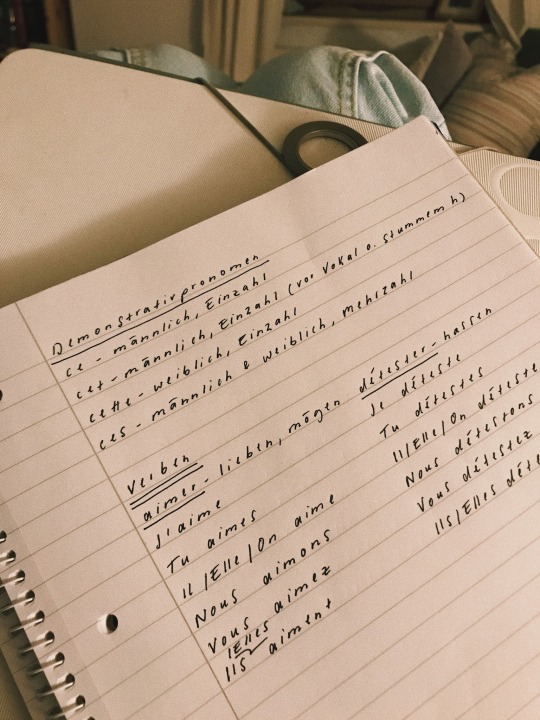 Demonstrativpronomen
ce - männlich, Einzahl
cet - männlich, Einzahl (vor Vokal o. stummem h)
cette - weiblich, Einzahl
ces - männlich & weiblich, Mehrzahl
Verben
aimer - lieben, mögen
J'aime
Tu aimes
Il/Elle/On aime
Nous aimons
Vous aimez
Ils/Elles aiment
détester - hassen
Je déteste
Tu détestes
Il/Elle/On déteste
Nous détestons
Vous détestez
Ils/Elles